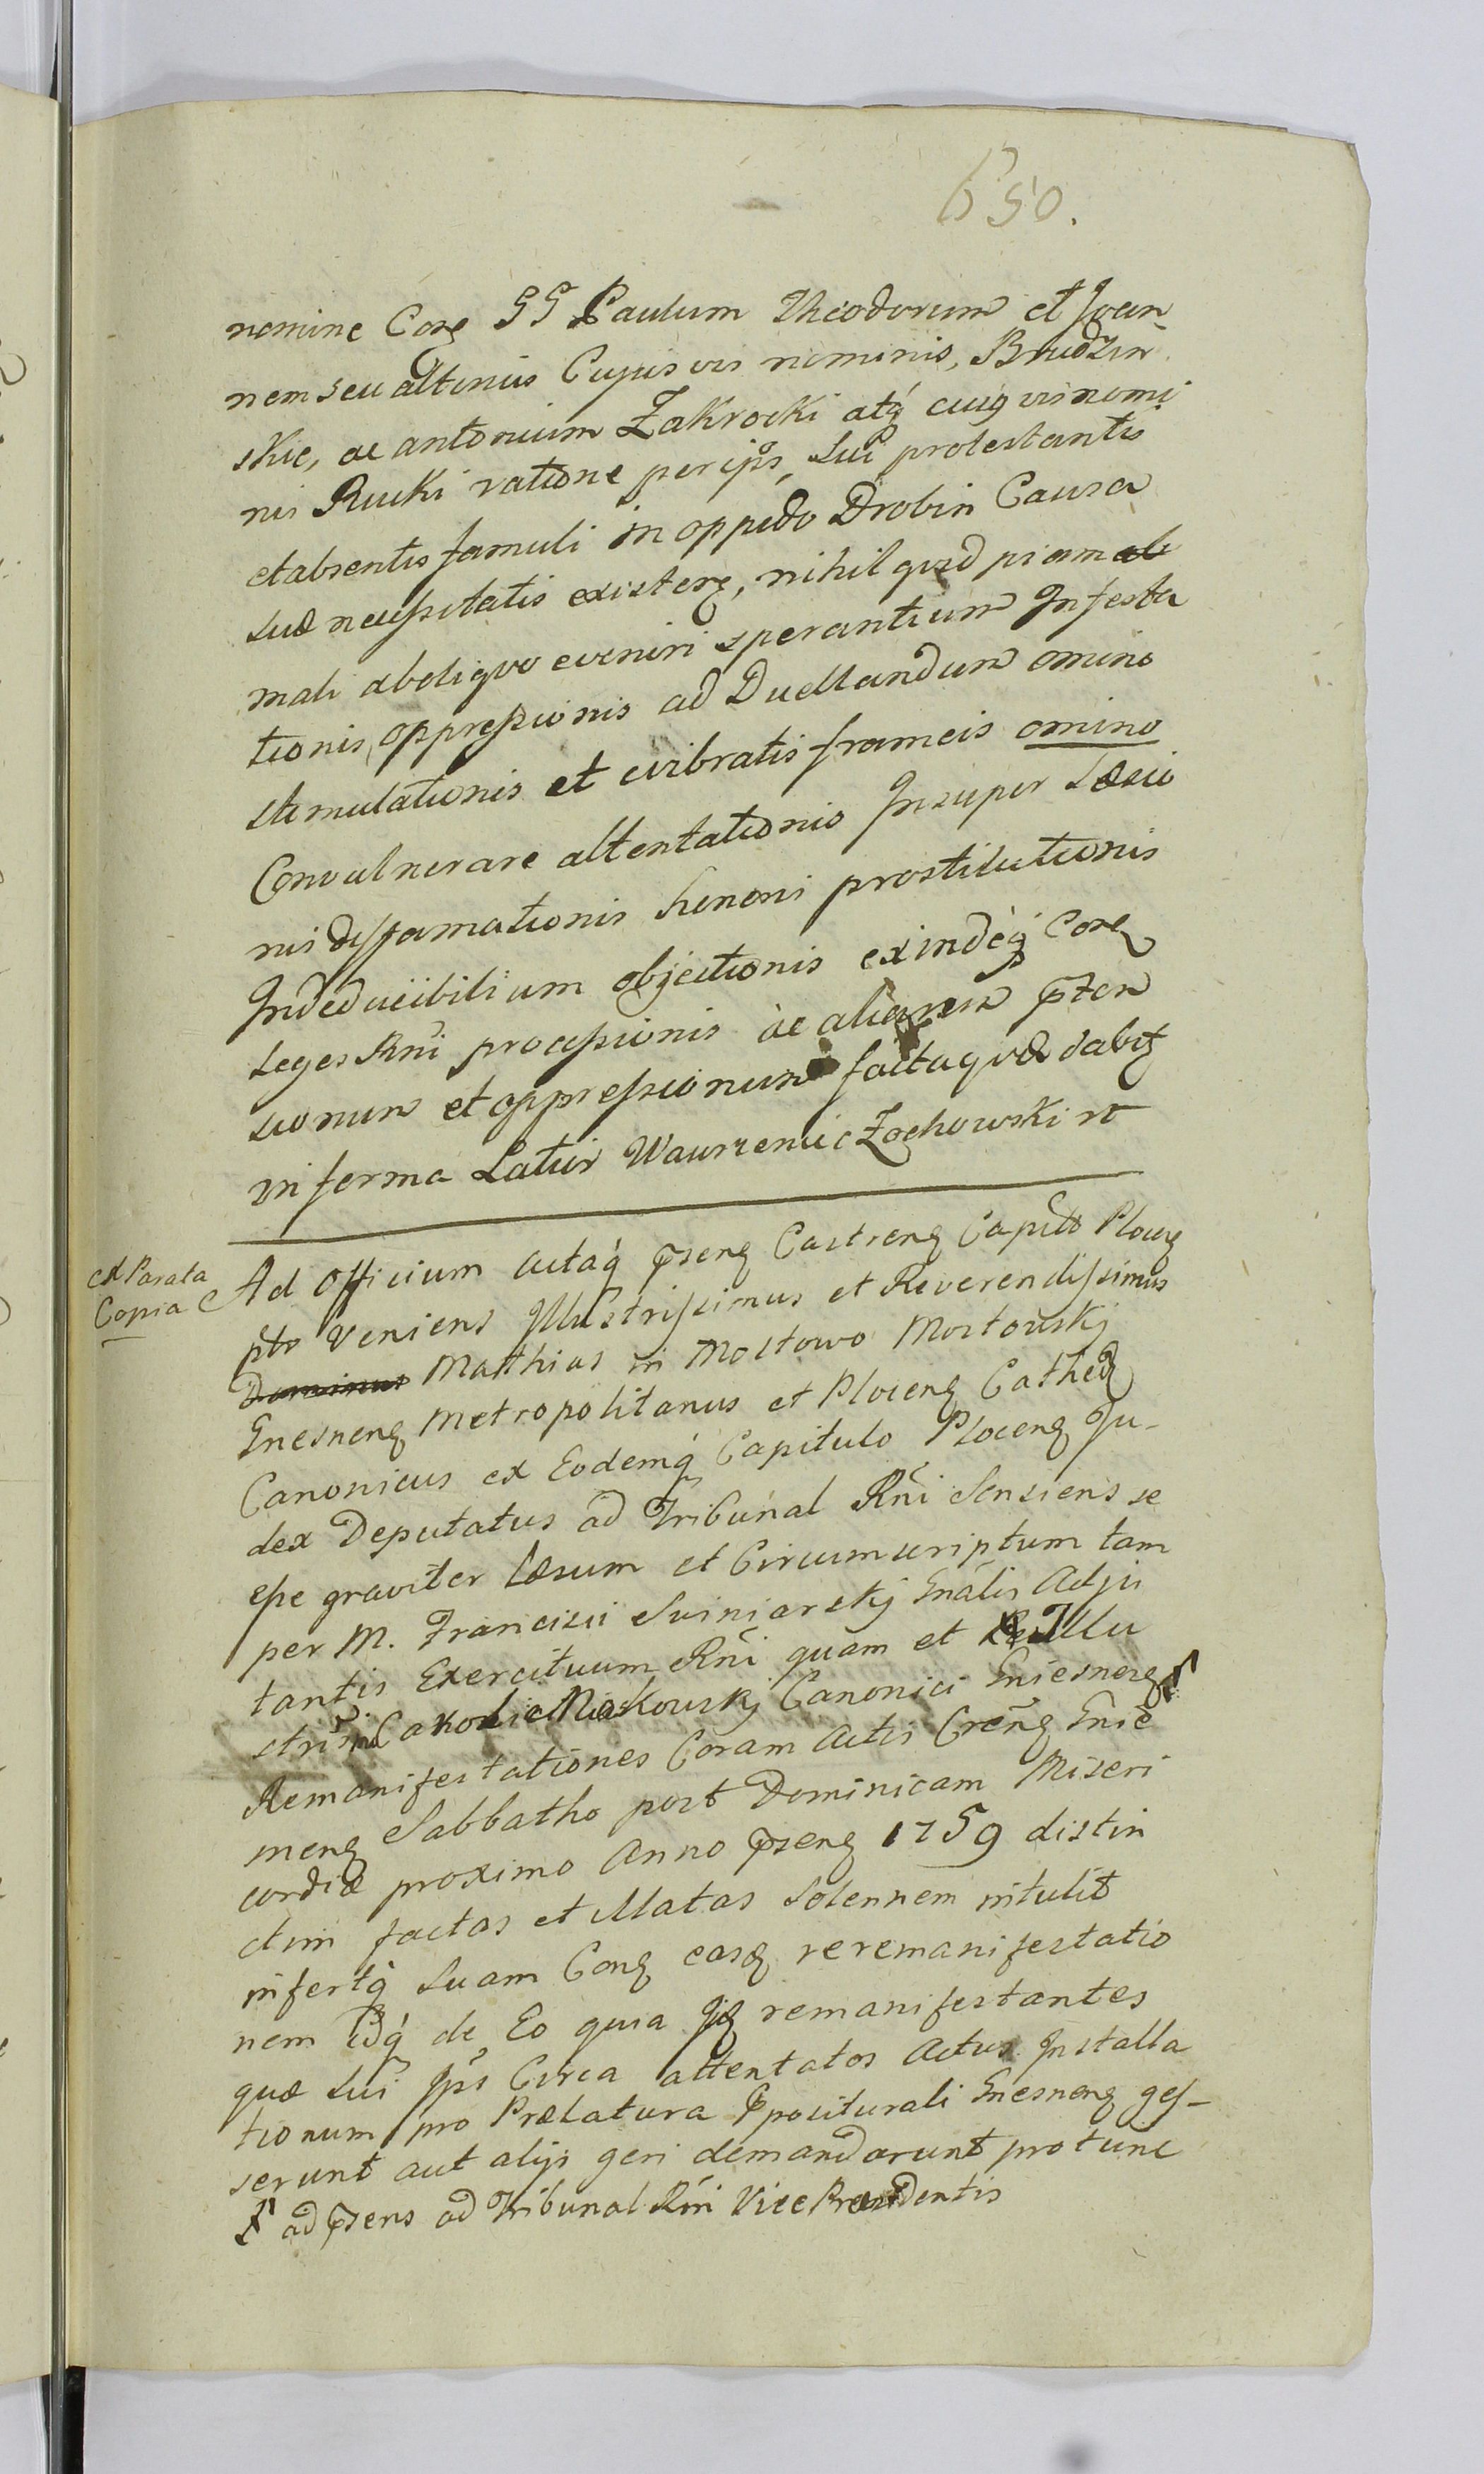 650.
nomine Conę GG Paulum Theodorum et Joan
nem seu alterius Cujus vis nominis, Brudzin
skie, ac antonium Zakrocki atq́ cuiq visnomi
nis Rucki ratione per ip̄s, sui protestantis
et absentis famuli in oppido Drobin Causa
suæ necessitatis existenę, nihil quod piam
mali ab aliquo eveniri sperantium Infesta
tionis, oppressionis ad Duellandum omino
stimulationis et evibratis frameis omino
Convulnerare attentationis Insuper Læsio
nis diffamationis honoris prostitutionis
Indeducibilium objectionis exindeq́ Conę
Leges Rńi processionis ac aliarum p̄ten
sionum et oppressionum factaquæ dabiŧ
in forma Latius Wawrzeniec Zochowski
ex Parata
Copia
Ad Officium actaq́ p̄senę Castrenę Capitł Plocenę
płr veniens Illustrissimus et Reverendissimus
Dominus Matthias in Mostowo Mostowskj
Gnesnenę Metropolitanus et Plocenę Cathedł
Canonicus ex Eodemq́ Capitulo Plocenę Ju-
dex Deputatus ad Tribunal Rńi Sensiens se
esse graviter læsum et Circumscriptum tam
per M. Francisci Swiniarskj Gnális Adju
tantis Exercituum Rńi quam et Illu
strismi Niakowskj Canonici Gniesnenę
Remanifestationes Coram Actis Crenę Gnie
snenę Sabbatho post Dominicam Miseri
cordiæ proximo Anno p̄senę 1759 distin
ctim factas et illatas Solennem intulit
infertq́ suam Conę easd reremanifestatio
nem idq́ de Eo quia Iid remanifestantes
quæ sui Ip̄i Circa attentatos Actus Installa
tionum pro Prælatura P̄positurali Gnesnenę ges-
serunt aut alijs geri demandarunt protunc
ad p̄sens ad Tribunal Rńi Vice Præsidentis